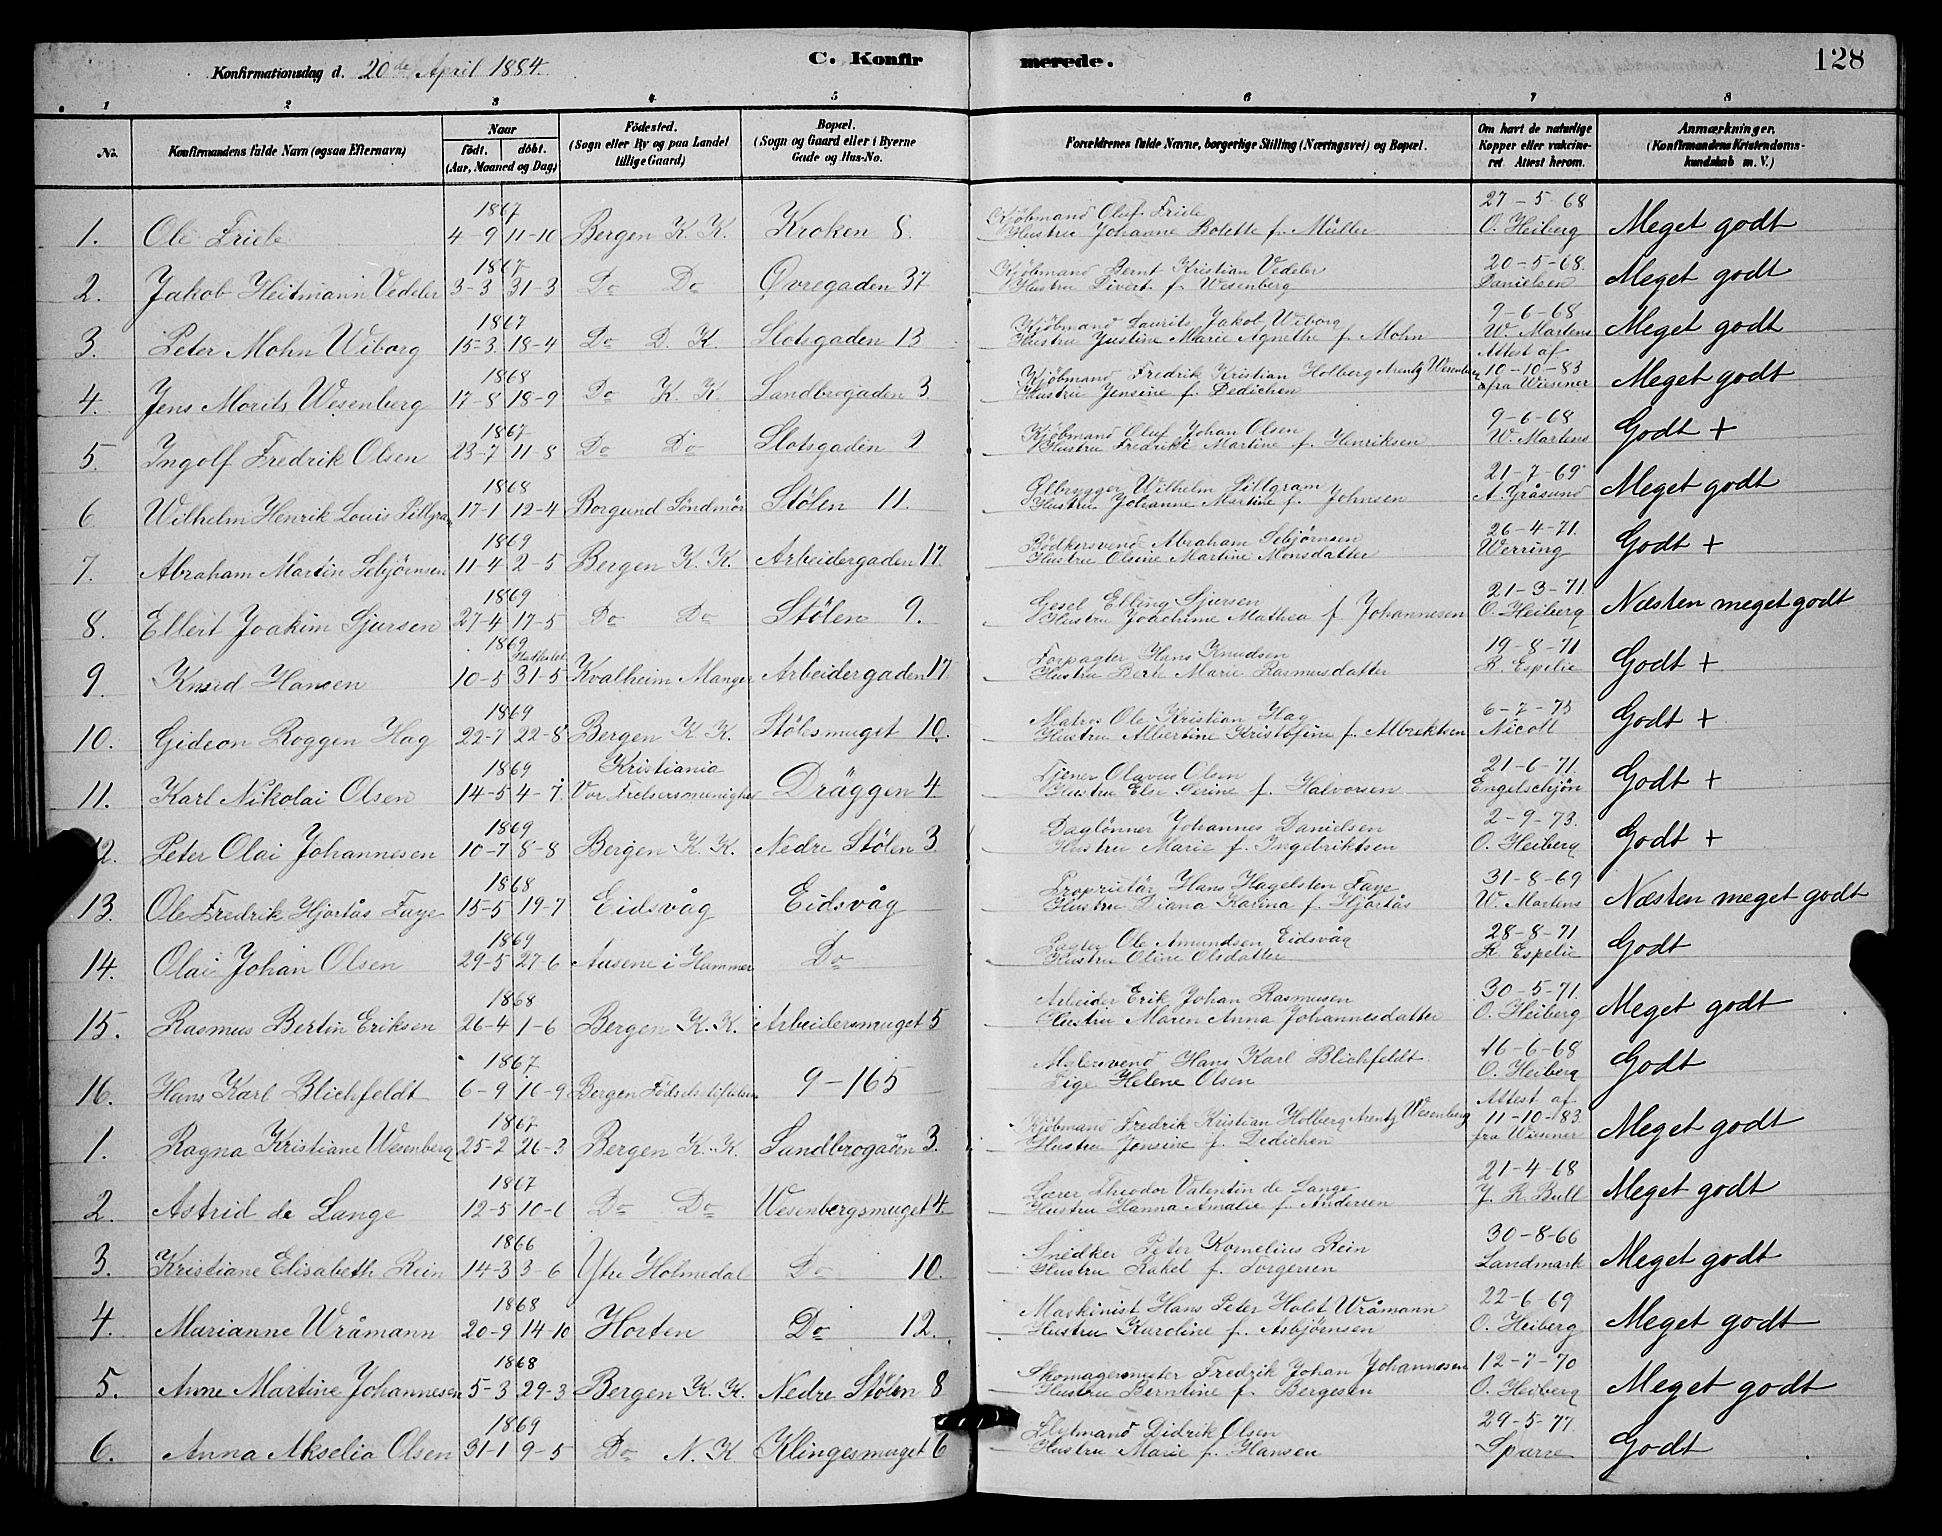 Konfirmationsdag d. 20de April 1884.
C. Konfirmerede.
128
1 2 3 4 5 6 7 8
No.
Konfirmandens fulde Navn (ogsaa Efternavn)
Naar
født. døbt.
(Aar, Maaned og Dag)
Fødested.
(Sogn eller By og paa Landet
tillige Gaard)
Bopæl.
(Sogn og Gaard eller i Byerne
Gade og Hus-No.
Forældrenes fulde Navne, borgerlige Stilling (Næringsvei) og Bopæl.
Om havt de naturlige
Kopper eller vakcine-
ret. Attest herom.
Anmærkninger.
(Konfirmandens Kristendoms-
kundskab m. V.)
1867 Kjøbmand Oluf Friele 27-5-68
1. Ole Friele 4-9 11-10 Bergen K. K. Kroken 8. Hustru Johanne Bolette f. Müller O. Heiberg Meget godt
1867 Kjøbmand Bernt Kristian Vedeler 20-5-68.
2. Jakob Heitmann Vedeler 3-3 31-3 Do Do Øvregaden 37 Hustru Divert f. Wesenberg Danielsen Meget godt
1867 Kjøbmand Laurits Jakob Wiborg 9-6-68
3. Peter Mohn Wiborg 15-3 18-4 Do D. K. Slotsgaden 13 Hustru Justine Marie Agnethe f. Mohn W. Martens Meget godt
1868 Kjøbmand Fredrik Kristian Holberg Arentz Wesenberg Attest af 10-10-83
4. Jens Morits Wesenberg 17-8 18-9 Do K. K. Sandbrogaden 3 Hustru Jensine f. Dedichen fra Wiesener Meget godt
1867 Kjøbmand Oluf Johan Olsen 9-6-68
5. Ingolf Fredrik Olsen 23-7 11-8 Do Do Slotsgaden 2 Hustru Fredrikke Martine f. Henriksen W. Martens Godt +
1868 Ølbrygger Wilhelm Pillgram 21-7-69
6. Wilhelm Henrik Louis Pillgram 17-1 12-4 Borgund Søndmør Stølen 11. Hustru Johanne Martine f. Johnsen A. Gråsund Meget godt
1869 Bødkersvend Abraham Sebjørnsen 26-4-71.
7. Abraham Martin Sebjørnsen 11-4 2-5 Bergen K. K. Arbeidergaden 17. Hustru Olsine Martine Monsdatter Werring Godt +
1869 Gesel Elling Sjursen 21-3-71.
8. Ellert Joakim Sjursen 27-4 17-5 Do Do Stølen 9. Hustru Joachime Mathea f. Johannesen O. Heiberg Næsten meget godt
1869 Forpagter Hans Knudsen 19-8-71
9. Knud Hansen 10-5 31-5 Kvalheim Manger Arbeidergaden 17 Hustru Berte Marie Rasmusdatter R. Espelie Godt +
1869 Matros Ole Kristian Hag 6-7-75
10. Gideon Roggen Hag 22-7 22-8 Bergen K. K. Stølesmuget 10. Hustru Albertine Kristofine f. Albrektsen Nicoll Godt +
1869 Kristiania Tjener Olavus Olsen 21-6-71.
11. Karl Nikolai Olsen 14-5 4-7 Vor Frelsersmenighed Dräggen 4 Hustru Else Serine f. Halvorsen Engelschjøn Godt +
1869 Daglønner Johannes Danielsen 2-9-73.
12. Peter Olai Johannesen 10-7 8-8 Bergen K. K. Nedre Stølen 3. Hustru Marie f. Ingebriktsen O. Heiberg Godt +
1868 Proprietär Hans Hagelsten Faye 31-8-69
13. Ole Fredrik Hjortås Faye 15-5 19-7 Eidsvåg Eidsvåg Hustru Diana Karina f. Hjortås W. Martens Næsten meget godt
1869 Pagter Ole Amundsen Eidsvåg 28-8-71
14. Olai Johan Olsen 29-5 27-6 Aasene i Hammer Do Hustru Oline Olsdatter R. Espelie Godt
1868 Arbeider Erik Johan Rasmusen 30-5-71.
15. Rasmus Bertin Eriksen 26-4 1-6 Bergen K. K. Arbeidersmuget 5 Hustru Maren Anna Johannesdatter O. Heiberg Meget godt
1867 Malersvend Hans Karl Blichfeldt 16-6-68
16. Hans Karl Blichfeldt 6-9 16-9 Bergen Fødselsstiftelsen 9-165 Pige Helene Olsen O. Heiberg Godt
1867 Kjøbmand Fredrik Kristian Holberg Arentz Wesenberg Attest af 11-10-83.
1. Ragna Kristiane Wesenberg 25-2 26-3 Bergen K. K. Sandbrogaden 3. Hustru Jensine f. Dedichen fra Wiesener Meget godt
1867 Lærer Theodor Valentin de Lange 21-4-68
2. Astrid de Lange 12-5 10-6 Do Do Wesenbergsmuget 4 Hustru Hanna Amalie f. Andersen J. R. Bull Meget godt
1866 Snedker Peter Kornelius Rein 30-8-66
3. Kristiane Elisabeth Rein 14-3 3-6 Ytre Holmedal Do 10. Hustru Rakel f. Torgersen Landmark Meget godt
1868 Maskinist Hans Peter Holst Wråmann 22-6-69
4. Marianne Wråmann 20-9 14-10 Horten Do 12. Hustru Karoline f. Asbjørnsen O. Heiberg Meget godt
1868 Skomagermester Fredrik Johan Johannesen 12-7-70
5. Anne Martine Johannesen 5-3 29-3 Bergen K. K. Nedre Stølen 8 Hustru Berntine f. Bergesen O. Heiberg Meget godt
1869 Flytmand Didrik Olsen 29-5-77.
6. Anna Akselia Olsen 31-1 9-5 Do N. K Klingesmuget 6 Hustru Marie f. Hansen Sparre Godt